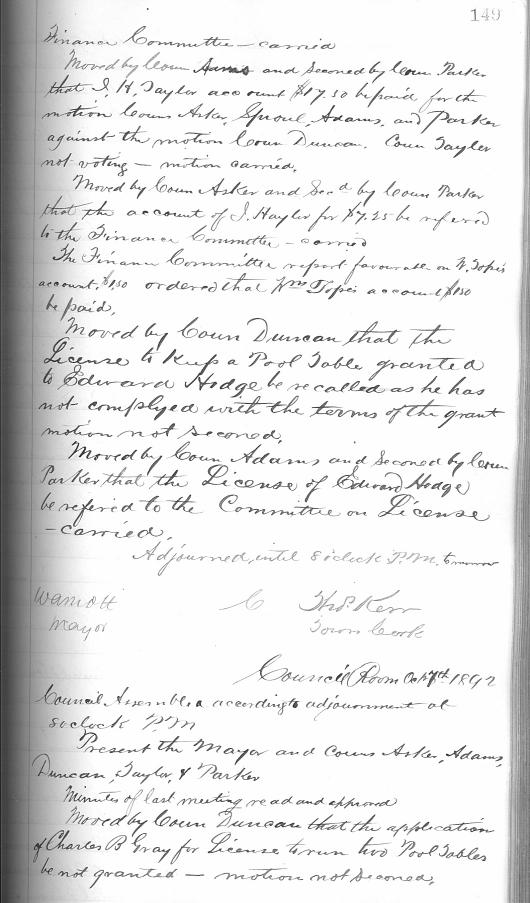 149
Finance Committee – carried
Moved by Coun Asker and Seconed by Coun Parker
that J. H. Taylor account $17.50 be paid, for the
motion Couns Asker, Sproul, Adams, and Parker
against the motion Coun Duncan. Coun Taylor
not voting – motion carried.
Moved by Coun Asker and Secd by Coun Parker
that the account of J. Haylor for $7.25 be refered
to the Finance Committee – carried
The Finance Committee report favourable on W. Topis
account, $1.50 ordered that Wm Topis account $1.50
be paid.
Moved by Coun Duncan that the
License to Keep a Pool Table granted
to Edward Hodge be recalled as he has
not complyed with the terms of the grant
motion not seconed.
Moved by Coun Adams and Seconed by Coun
Parker that the License of Edward Hodge
be refered to the Committee on License
– carried.
Adjourned, until 8 oclock P.M. tomorrow
Mayor
Thos. Kerr
Town Clerk
Council Room Oct 7th 1892
Council Assembled according to adjournment at
8 oclock PM
Present the Mayor and Couns Asker, Adams,
Duncan, Taylor, & Parker
Minutes of last meeting read and approved
Moved by Coun Duncan that the application
of Charles B Gray for License to run two Pool Tables
be not granted – motion not seconed.